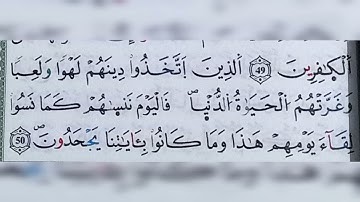 اَلْكٰفِرِينَ 49 اَلَّذِينَ اَتَّخَذُواْ دِينَهُمْ لَهْواٗ وَلَعِباٗ
وَغَرَّتْهُمُ اُلْحَيَوٰةُ اُلدُّنْيٰاۖ فَالْيَوْمَ نَنس۪يٰهُمْ كَمَا نَسُواْ
لِقَآءَ يَوْمِهِمْ هَٰذَا وَمَا كَانُواْ بِـَٔايَٰتِنَا يَجْحَدُونَۖ 50